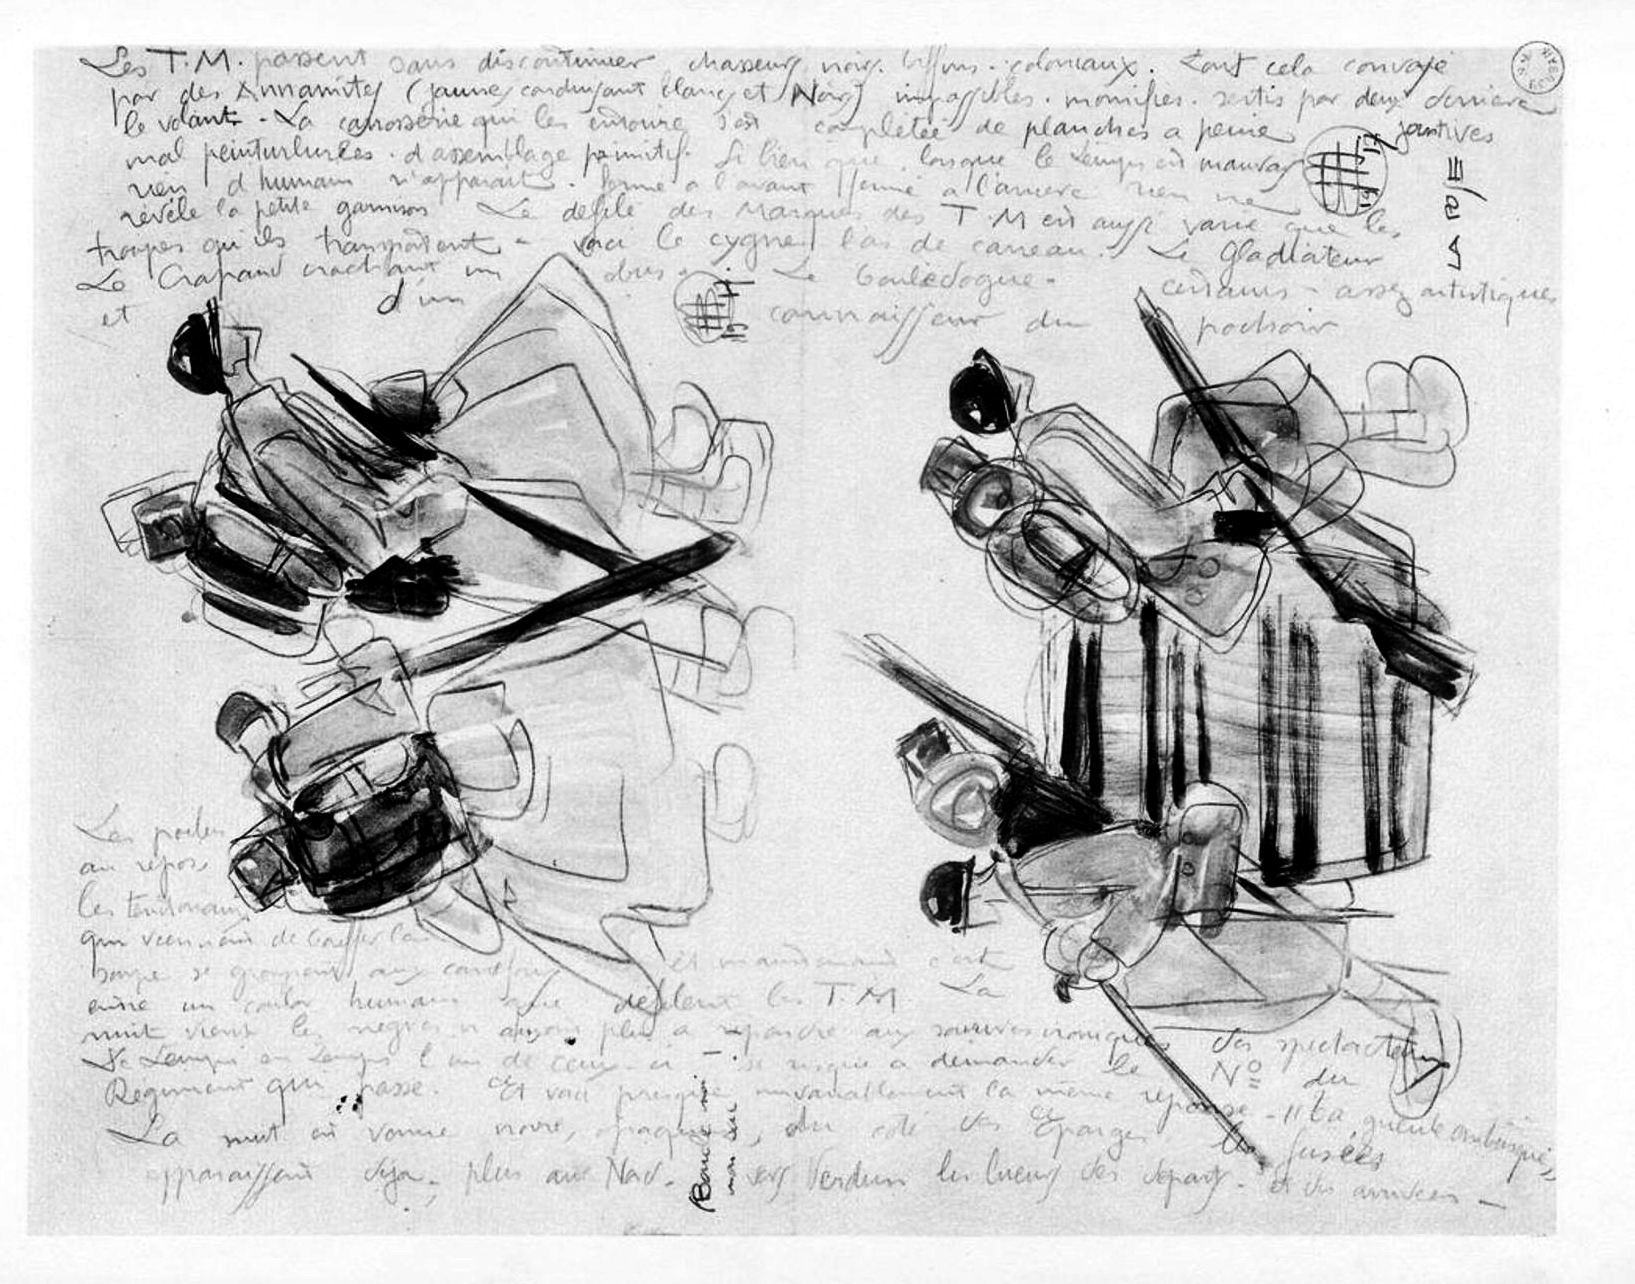 Les T.M. passent sans discontinuer chasseurs, noirs. biffins. coloniaux. Tout cela convoyé
par des Annamites (jaunes conduisant blancs et Noirs) impassibles. momifiés. sertis par deux derrière
le volant. La carrosserie qui les entoure s'est complétée de planches à peine jointives
mal peinturlurées. d'assemblage primitif. Si bien que lorsque le temps est mauvais
rien d'humain n'apparait. fermé à l'avant fermé à l'arrière rien ne
révèle la petite garnison Le défilé des Marques des T.M est aussi varié que les
troupes qu'ils transportent - voici le cygne, l'as de carreau. Le Gladiateur
Le Crapaud crachant un obus. Le Bouledogue - certains - assez artistiques
et d'un connaisseur du pochoir
Les poilus
au repos
les
qui de bouffer la
soupe se aux
un couloir humain que défilent les T.M.
et maintenant c'est La
nuit vient les nègres n'ayant plus à répondre aux sourires ironiques des spectateurs
De temps en temps l'un de ceux-ci se risque à demander le Nº du
Régiment qui passe. Et voici presque invariablement la même réponse - "Ta gueule embusqué"
La nuit est venue noire, du coté des Eparges les fusées
apparaissent déja. plus au Nord. vers Verdun les lueurs des départs. et des arrivées -